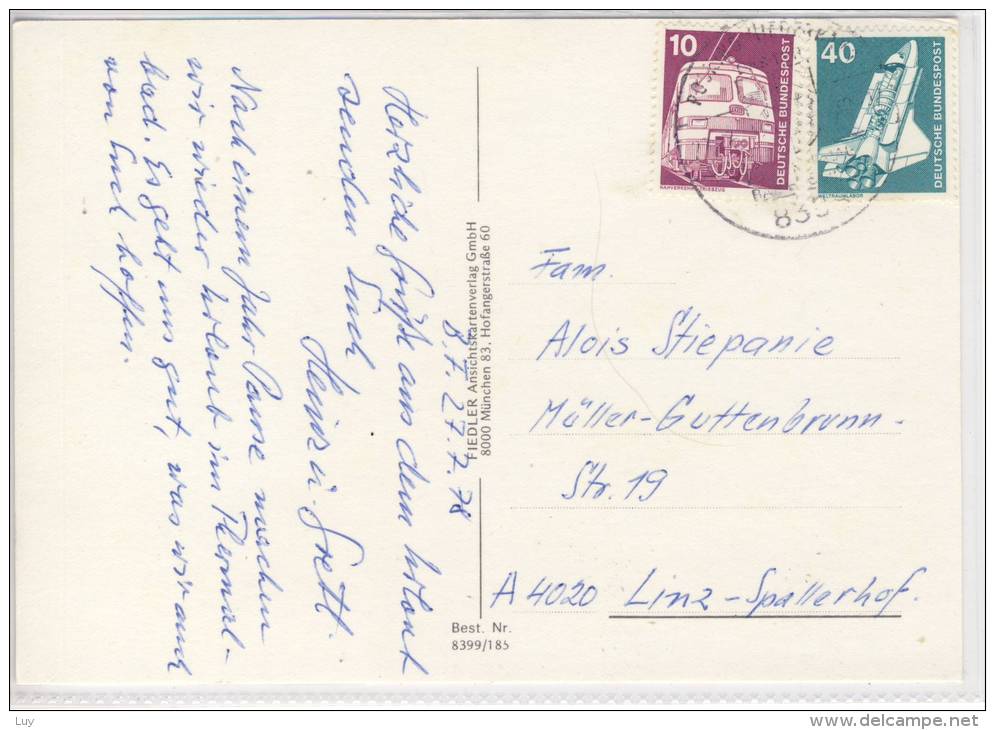 27.7.78
Herzliche Grüße aus dem Urlaub
senden Euch
Heinz u. Gretl.
Nach einem Jahr Pause machen
wir wieder Urlaub im Thermal-
bad. Es geht uns gut, was wir auch
von Euch hoffen.
FIEDLER Ansichtskartenverlag GmbH
8000 München 83, Hofangerstraße 60
Best. Nr.
8399/185
10
DEUTSCHE BUNDESPOST
NAHVERKEHRS-TRIEBZUG
40
DEUTSCHE BUNDESPOST
WELTRAUMLABOR
Fam.
Alois Stiepanie
Müller-Guttenbrunn-
Str. 19
A 4020 Linz-Spallerhof.
Luy
www.delcampe.net